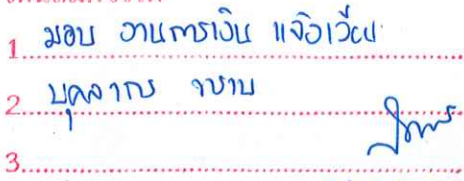 1 มอบ งานการเงิน แจ้งเวียน
2 บุคลากร ทราบ
3